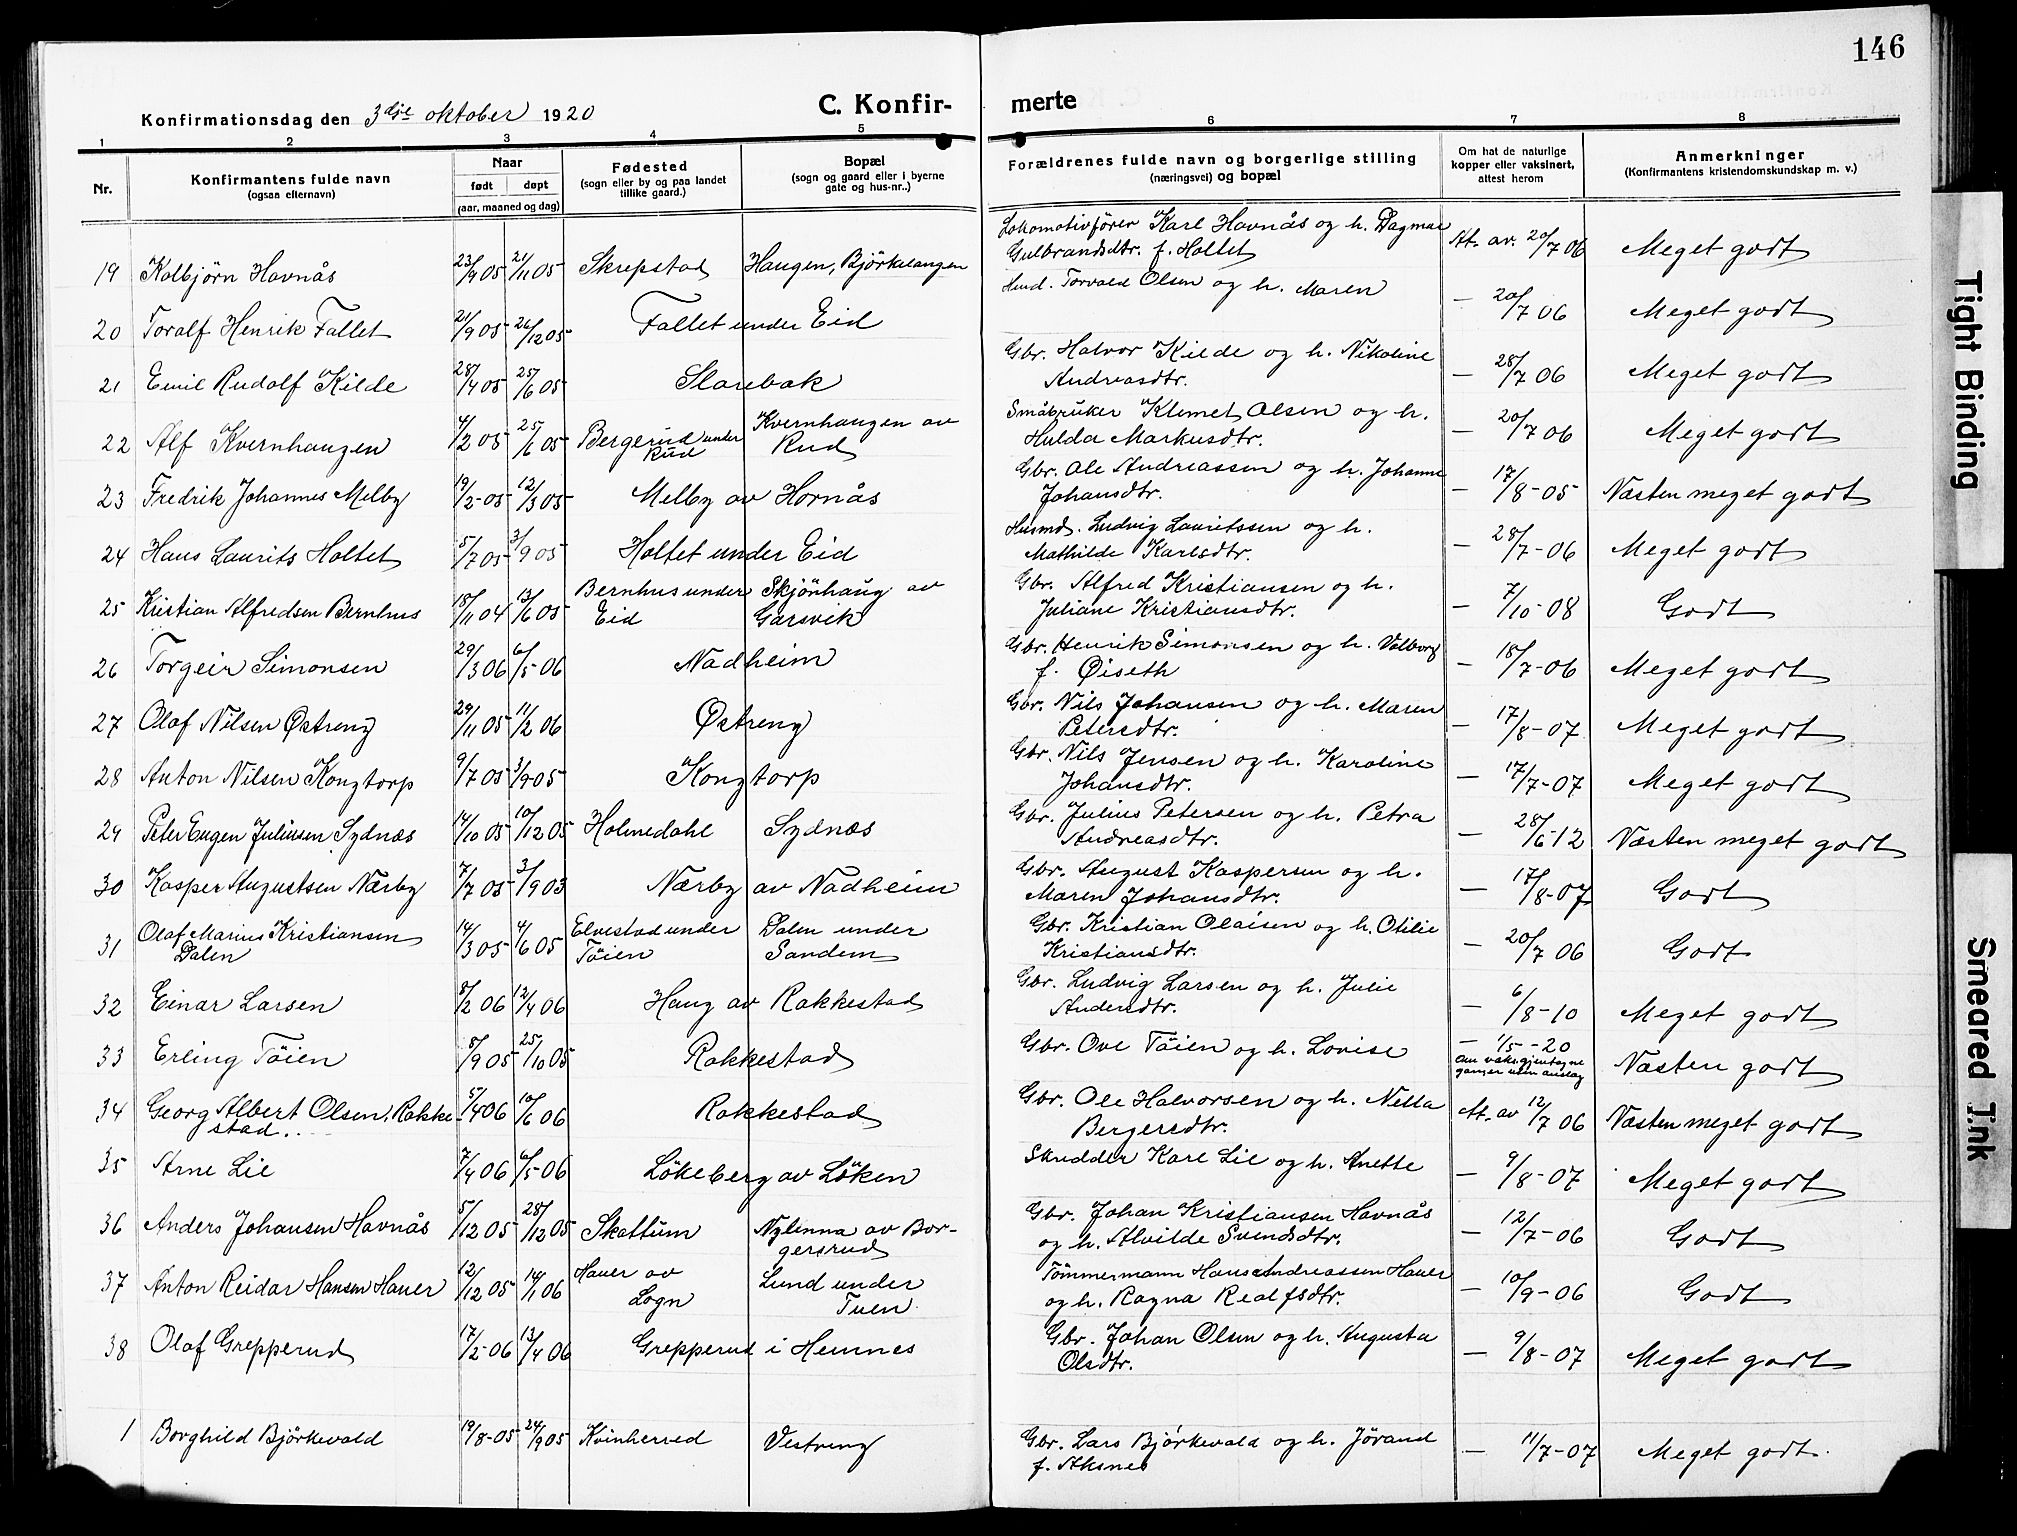 146
Konfirmationsdag den 3dje oktober 1920
C. Konfir-
merte
1 2 3 4 5 6 7 8
Nr.
Konfirmantens fulde navn
(ogsaa efternavn)
Naar
født døpt
(aar, maaned og dag)
Fødested
(sogn eller by og paa landet
tillike gaard.)
Bopæl
(sogn og gaard eller i byerne
gate og hus-nr..)
Forældrenes fulde navn og borgerlige stilling
(næringsvei) og bopæl
Om hat de naturlige
kopper eller vaksinert,
attest herom
Anmerkninger
(Konfirmantens kristendomskundskap m. v.)
19 Kolbjörn Havnås 23/9 05 21/11 05 Skrepstad Haugen, Björkelangen Lokomotivförer Karl Havnås og h. Dagmar
Gulbrandsdtr. f. Holtet At. av. 20/7 06 Meget godt
20 Toralf Henrik Fallet 21/9 05 26/12 05 Fallet under Eid Hmd. Torvald Olsen og h. Maren — 20/7 06 Meget godt
21 Emil Rudolf Kilde 28/4 05 25/6 05 Slorebak Gbr. Halvor Kilde og h. Nikoline
Andreasdtr. — 28/7 06 Meget godt
22 Alf Kvernhaugen 4/2 05 25/6 05 Bergerud under
Rud Kvernhaugen av
Rud Småbruker Klemet Olsen og h.
Hulda Markusdtr. — 20/7 06 Meget godt
23 Fredrik Johannes Melby 19/2-05 12/3 05 Melby av Hornås Gbr. Ole Andreassen og h. Johanne
Johansdtr. — 17/8-05 Næsten meget godt
24 Hans Laurits Holtet 5/7 05 3/9 05 Holtet under Eid Husmd. Ludvig Lauritssen og h.
Mathilde Karlsdtr. — 28/7-06 Meget godt
25 Kristian Alfredsen Bernhus 18/11 04 13/6 05 Bernhus under
Eid Skjönhaug av
Garsvik Gbr. Alfred Kristiansen og h.
Juliane Kristiansdtr. — 7/10-08 Godt
26 Torgeir Simonsen 29/3 06 6/5-06 Nadheim Gbr. Henrik Simonsen og h. Valborg
f. Øiseth — 18/7-06 Meget godt
27 Olaf Nilsen Østreng 29/11 05 11/2 06 Østreng Gbr. Nils Johansen og h. Maren
Petersdtr. — 17/8-07 Meget godt
28 Anton Nilsen Kongtorp 9/7 05 3/9 05 Kongtorp Gbr. Nils Jensen og h. Karoline
Johansdtr. — 17/7-07 Meget godt
29 Peter Eugen Juliussen Sydnæs 14/10 05 10/12 05 Holmedahl Sydnæs Gbr. Julius Petersen og h. Petra
Andreasdtr. — 28/6-12 Næsten meget godt
30 Kasper Augustsen Nærby 7/7 05 3/9 03 Nærby av Nadheim Gbr. August Kaspersen og h.
Maren Johansdtr. — 17/8-07 Godt
31 Olaf Marius Kristiansen
Dalen 14/3 05 4/6 05 Elvestad under
Töien Dalen under
Sandem Gbr. Kristian Olaisen og h. Otilie
Kristiansdtr. — 20/7 06 Godt
32 Einar Larsen 8/2 06 12/4 06 Haug av Rakkestad Gbr. Ludvig Larsen og h. Julie
Andersdtr. — 6/8-10 Meget godt
33 Erling Töien 8/9 05 25/10 05 Rakkestad Gbr. Ove Töien og h. Lovise — 1/5-20
om vaks. gjentagne
ganger uten anslag Næsten godt
34 Georg Albert Olsen, Rakke-
stad 5/4 06 10/6 06 Rakkestad Gbr. Ole Halvorsen og h. Netta
Bergersdtr. At. av 12/7 06 Næsten meget godt
35 Arne Lie 7/4 06 6/5-06 Lökeberg av Löken Skredder Karl Lie og h. Anette — 9/8-07 Meget godt
36 Anders Johansen Havnås 5/12 05 28/12 05 Skattum Nylinna av Bor-
gersrud Gbr. Johan Kristiansen Havnås
og h. Alvilde Svendsdtr. — 12/7-06 Godt
37 Anton Reidar Hansen Hauer 12/12 05 14/1 06 Hauer av
Logn Lund under
Tuen Tömmermann Hans Andreassen Hauer
og h. Ragna Realfsdtr. — 10/9-06 Godt
38 Olaf Grepperud 17/2-06 13/4 06 Grepperud i Hemnes Gbr. Johan Olsen og h. Augusta
Olsdtr. — 9/8-07 Meget godt
1 Borghild Björkevald 19/8-05 24/9 05 Kvinherred Vestreng Gbr. Lars Björkevald og h. Jörand
f. Aksnes — 11/7-07 Meget godt.
Tight Binding
Smeared Ink